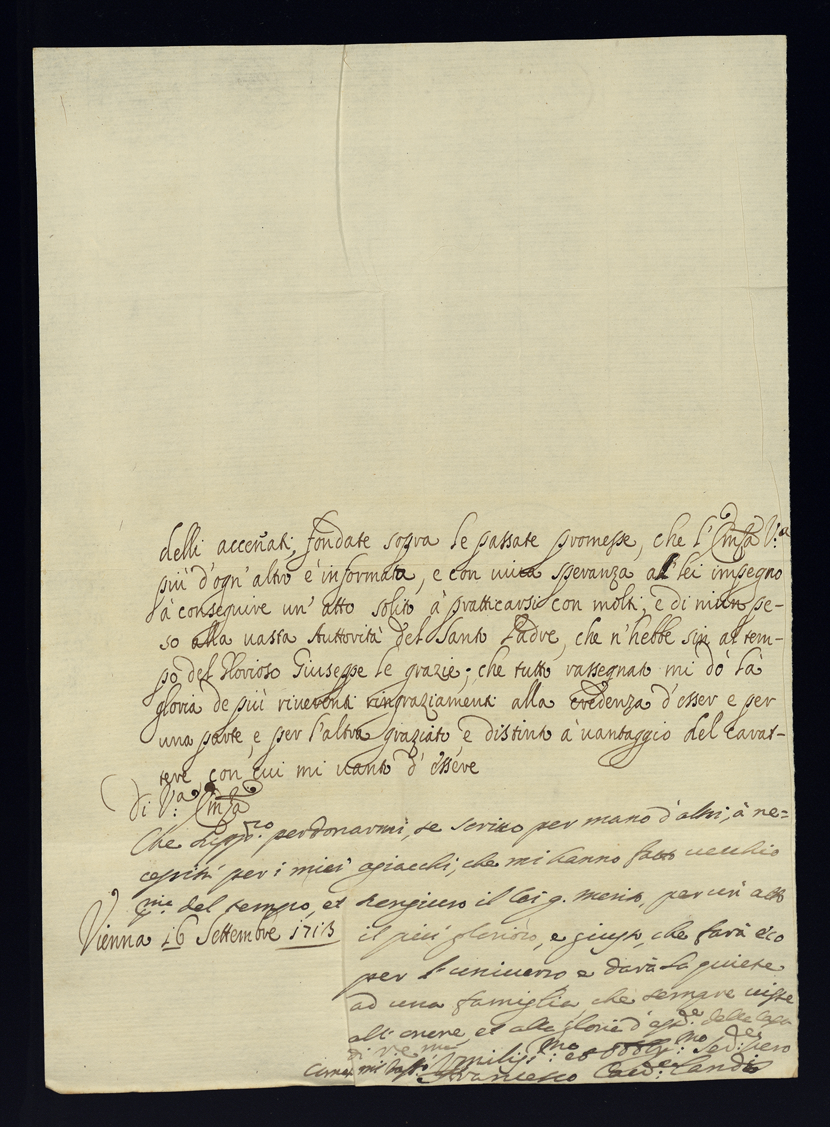 delli acceñati, fondate sopra le passate promesse, che l'Em̃za V.ª
più d'ogn'altro è informata, e con viva speranza al lei impegno
à conseguire un' atto solito à pratticarsi con molti, e di niun pe-
so alla vasta Auttorità del Santo Padre, che n'hebbe sin al tem-
po del Glorioso Giuseppe le grazie; che tutto rassegnato mi dò la
gloria de più riverenti ringraziamenti alla credenza d'esser e per
una parte, e per l'altra graziato e distinto à vantaggio del carat-
tere, con cui mi vanto d'essere
Di V.ª Em̃za
Che perdonarmi, se scrivo per mano d'altri, à ne=
per i miei aciacchi, che mi hanno fatto vecchio
del tempo, et il lei g. merito, per un atto
Vienna 16 Settembre 1713
il più glorioso, e giusto, che farà eco
per l'universo e darà la quiete
ad una famiglia, che sempre visse
all' onore, et alla gloria d' della Casa
di V. E.
Humiliss.mo et Obblig.mo Ser.e vero
Francesco